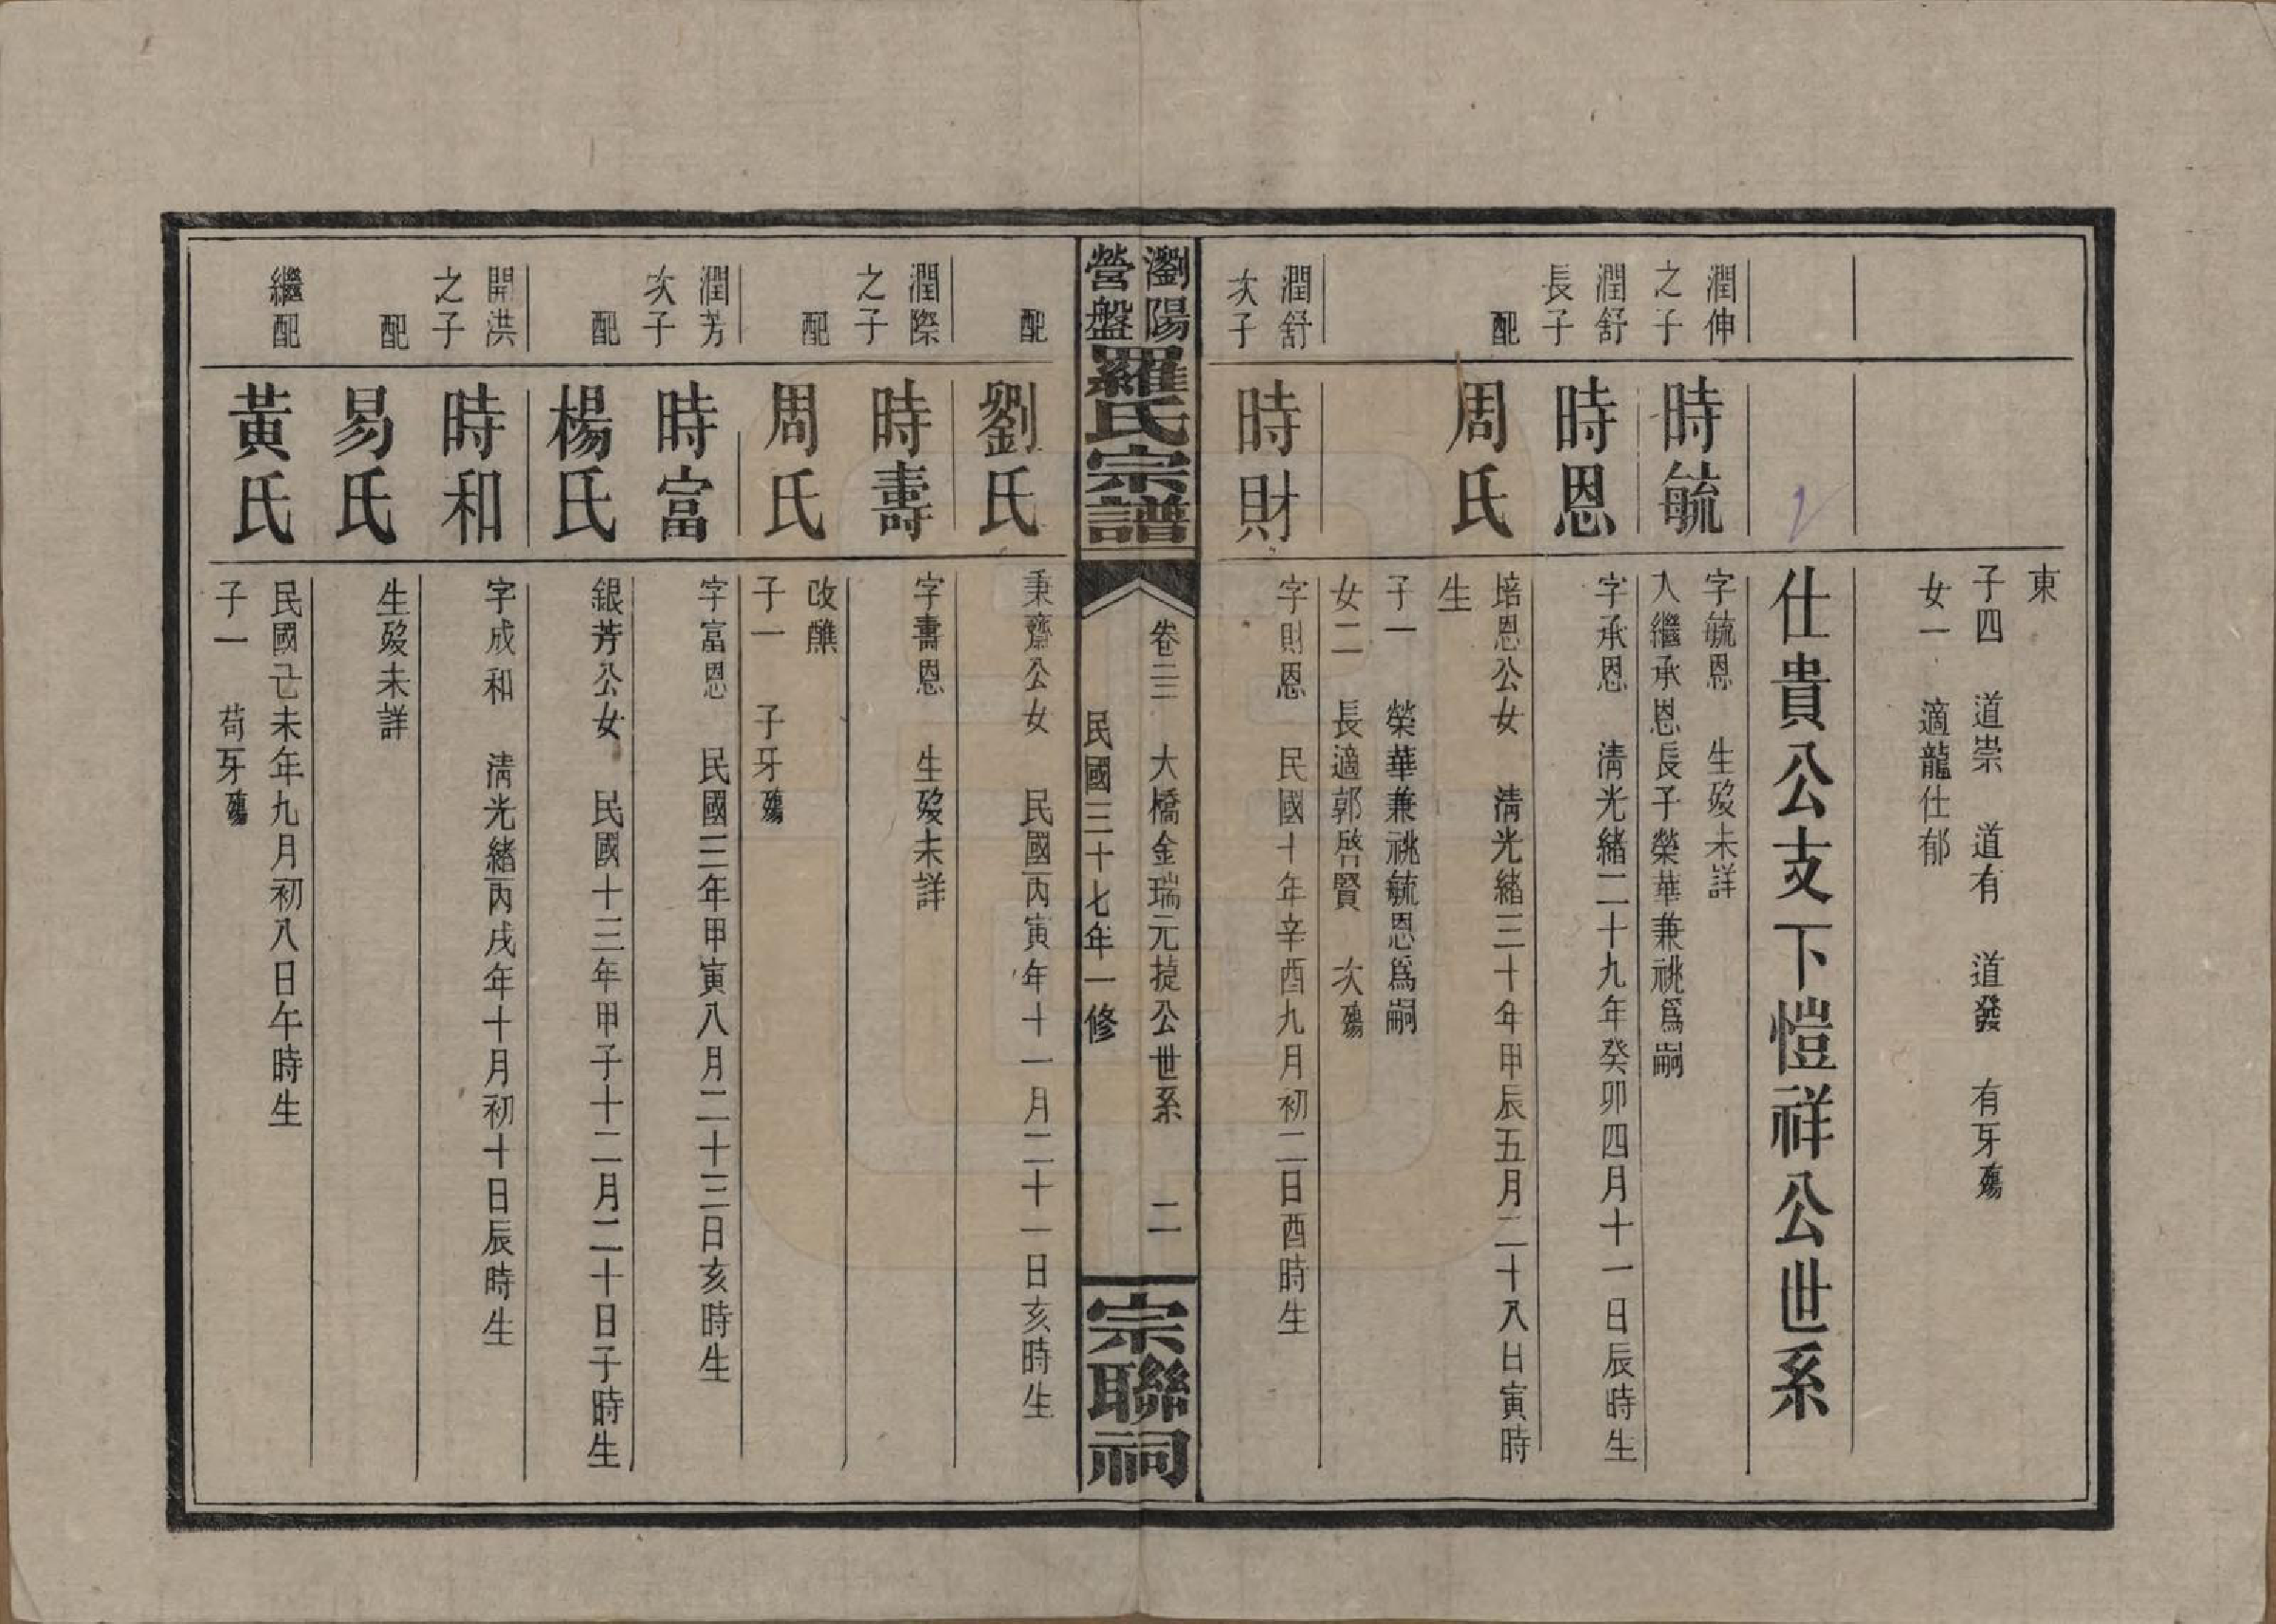 東
子四　道崇　道有　道發　有牙殤
女一　適龍仕郁
仕貴公支下愷祥公世系
潤伸之子
時毓
字毓恩　生歿未詳
入繼承恩長子榮華兼祧爲嗣
潤舒長子
時恩
字承恩　清光緒二十九年癸卯四月十一日辰時生
配
周氏
培恩公女　清光緒三十年甲辰五月二十八日寅時
生
子一　榮華兼祧毓恩爲嗣
女二　長適郭啓賢　次殤
潤舒次子
時財
字財恩　民國十年辛酉九月初二日酉時生
瀏陽營盤羅氏宗譜
卷三　大橋金瑞元㨗公世系　二
民國三十七年一修
宗聯祠
配
劉氏
秉齋公女　民國丙寅年十一月二十一日亥時生
潤際之子
時壽
字壽恩　生歿未詳
配
周氏
改醮
子一　子牙殤
潤芳次子
時富
字富恩　民國三年甲寅八月二十三日亥時生
配
楊氏
銀芳公女　民國十三年甲子十二月二十日子時生
開洪之子
時和
字成和　清光緒丙戌年十月初十日辰時生
配
易氏
生歿未詳
繼配
黃氏
民國己未年九月初八日午時生
子一　苟牙殤